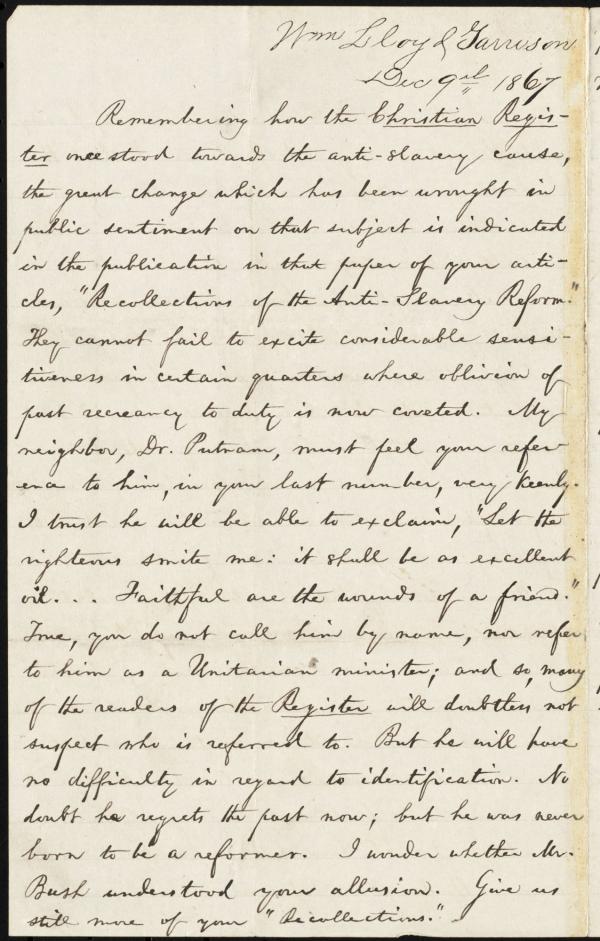 Wm Lloyd Garrison
Dec 9th 1867
Remembering how the Christian Regis-
ter once stood towards the anti-slavery cause,
the great change which has been wrought in
public sentiment on that subject is indicated
in the publication in that paper of your arti-
cles, "Recollections of the Anti-Slavery Reform."
They cannot fail to excite considerable sensi-
tiveness in certain quarters where oblivion of
past recreancy to duty is now coveted. My
neighbor, Dr. Putnam, must feel your refer-
ence to him, in your last number, very keenly.
I trust he will be able to exclaim, "Let the
righteous smite me: it shall be as excellent
oil. . . Faithful are the wounds of a friend."
True, you do not call him by name, nor refer
to him as a Unitarian minister; and so, many
of the readers of the Register will doubtless not
suspect who is referred to. But he will have
no difficulty in regard to identification. No
doubt he regrets the past now; but he was never
born to be a reformer. I wonder whether Mr.
Bush understood your allusion. Give us
still more of your "Recollections."